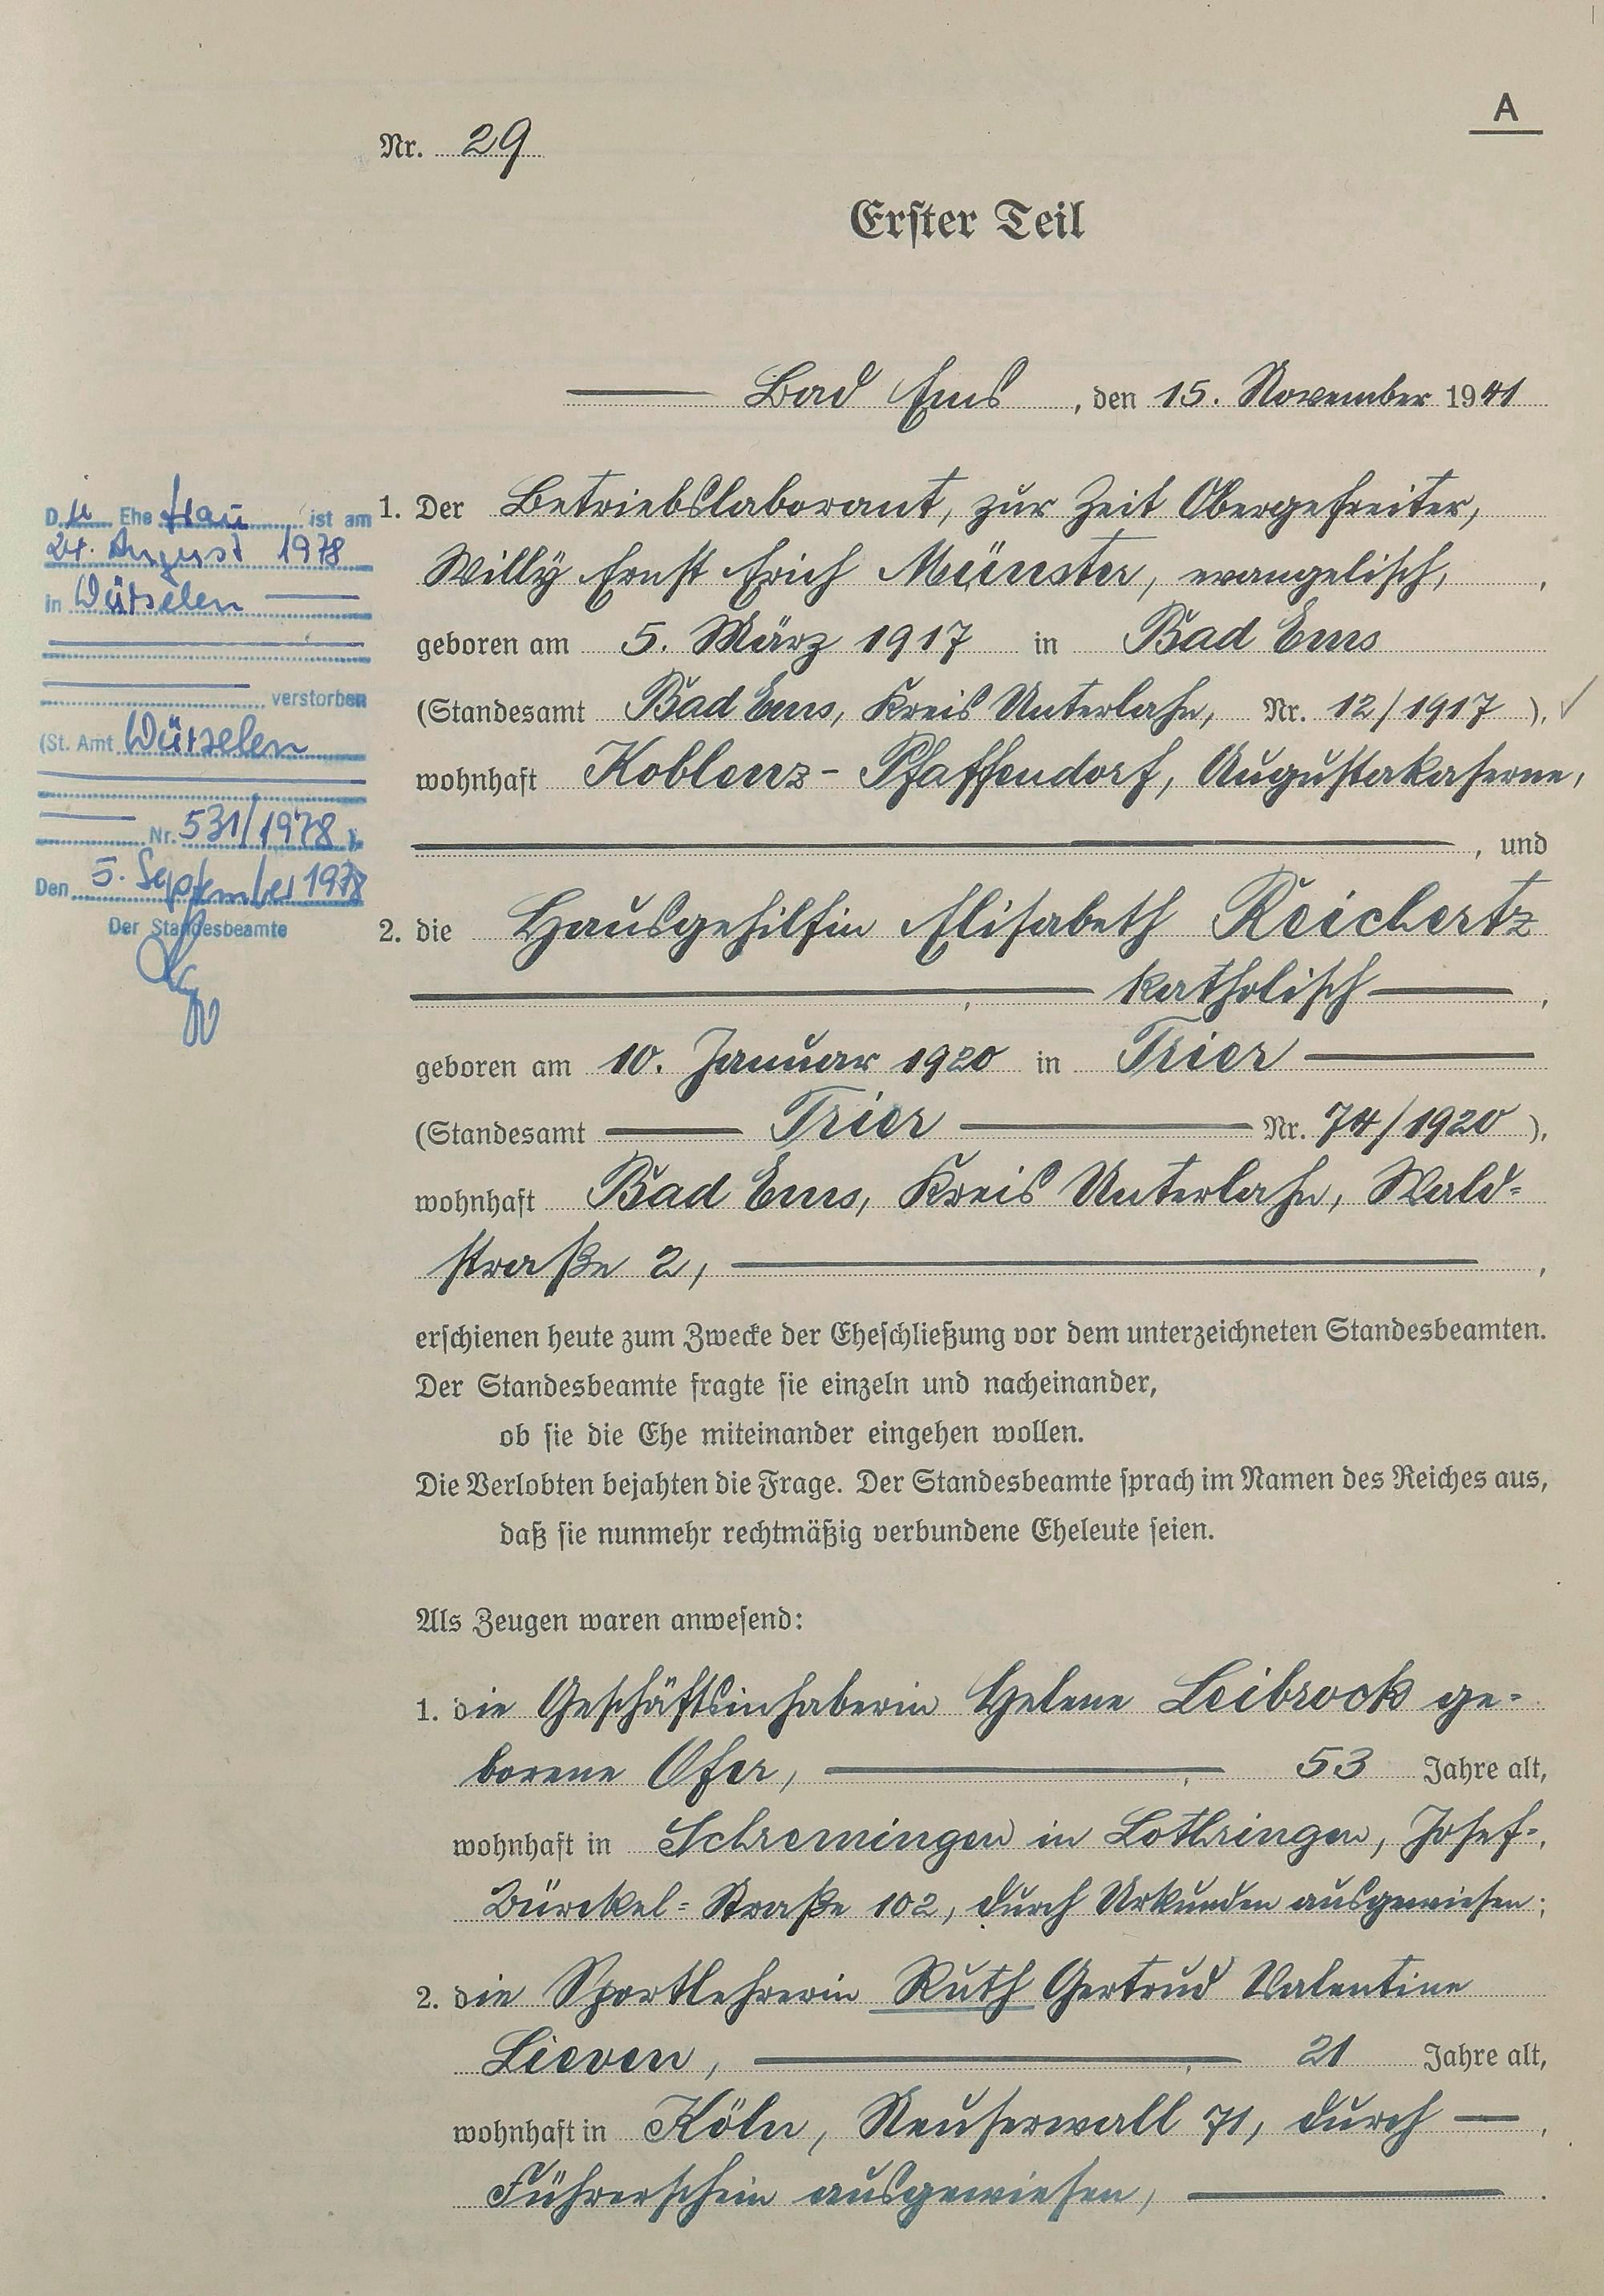 A
Nr. 29
Erster Teil
Bad Ems, den 15. November 1941
Die Ehefrau ist am
24. August 1978
in Würselen
verstorben
(St. Amt Würselen
Nr. 531/1978).
Den 5. September 1978
Der Standesbeamte
1. Der Betriebslaborant, zur Zeit Obergefreiter,
Willy Ernst Erich Münster, evangelisch,
geboren am 5. März 1917 in Bad Ems
(Standesamt Bad Ems, Kreis Unterlahn, Nr. 12/1917),
wohnhaft Koblenz-Pfaffendorf, Augustakaserne,
, und
2. die Hausgehilfin Elisabeth Reichertz
katholisch
geboren am 10. Januar 1920 in Trier
(Standesamt Trier Nr. 74/1920),
wohnhaft Bad Ems, Kreis Unterlahn, Wald-
straße 2,
erschienen heute zum Zwecke der Eheschließung vor dem unterzeichneten Standesbeamten.
Der Standesbeamte fragte sie einzeln und nacheinander,
ob sie die Ehe miteinander eingehen wollen.
Die Verlobten bejahten die Frage. Der Standesbeamte sprach im Namen des Reiches aus,
daß sie nunmehr rechtmäßig verbundene Eheleute seien.
Als Zeugen waren anwesend:
1. die Geschäftsinhaberin Helene Leibrock ge-
borene Ofer, 53 Jahre alt,
wohnhaft in Schremingen in Lothringen, Josef-
Bürckel-Straße 102, durch Urkunden ausgewiesen;
2. die Sportlehrerin Ruth Gertrud Valentine
Lieven, 21 Jahre alt,
wohnhaft in Köln, Neuserwall 71, durch
Führerschein ausgewiesen,